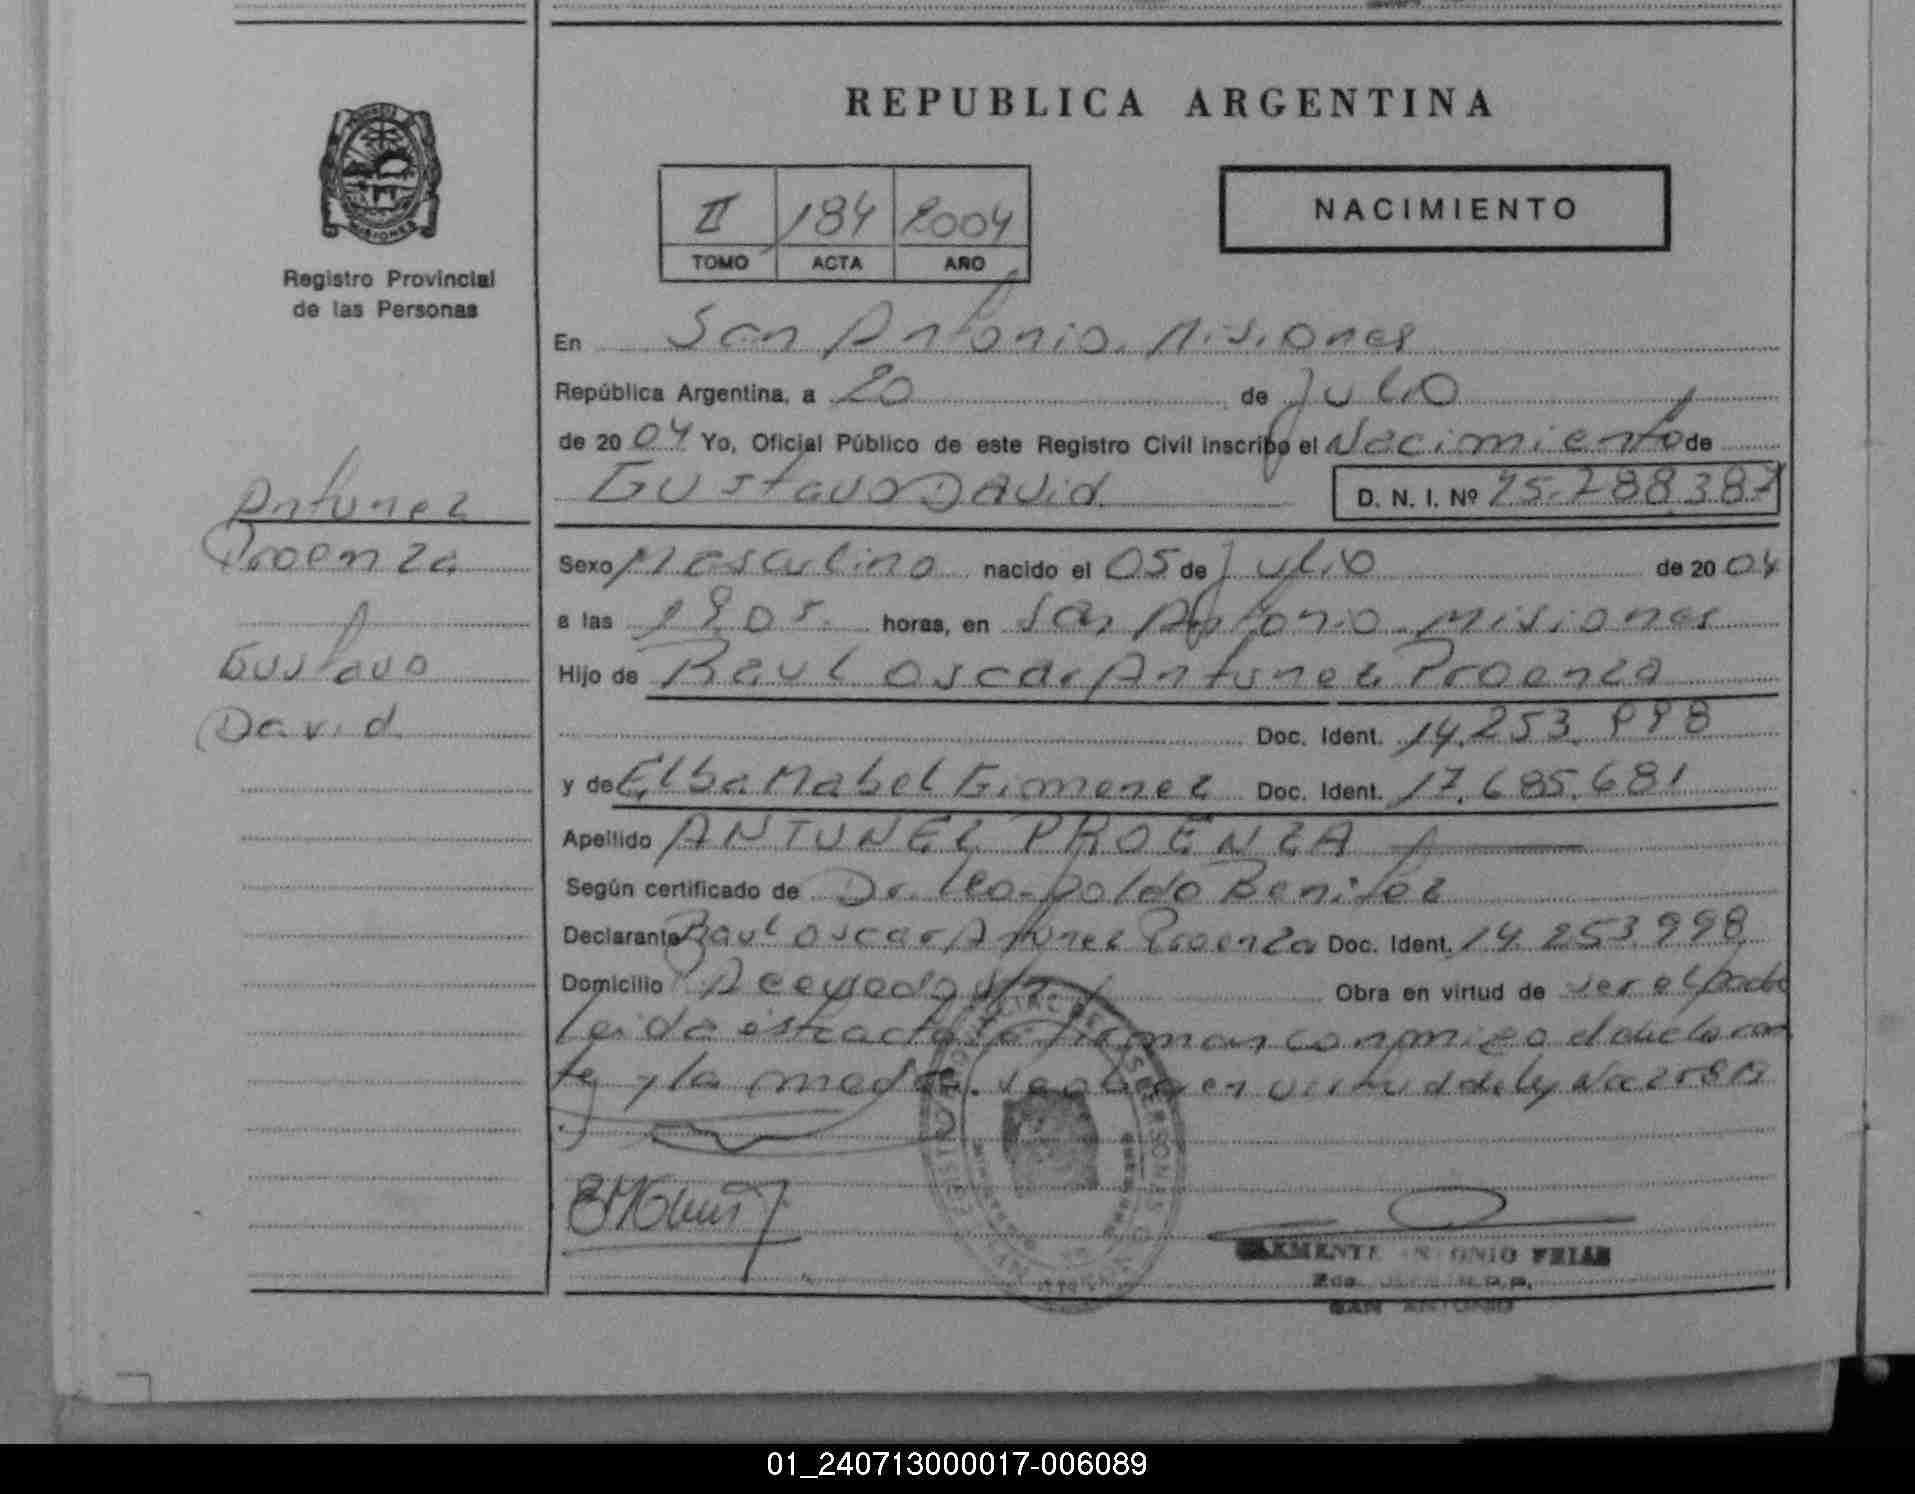 REPUBLICA ARGENTINA
II 184 2004
TOMO ACTA AÑO
NACIMIENTO
PROVINCIA
MISIONES
Registro Provincial
de las Personas
Antunez
Proenza
Gustavo
David
En San Antonio. Misiones
República Argentina, a 20 de Julio
de 2004 Yo, Oficial Público de este Registro Civil inscribo el Nacimiento de
Gustavo David D. N. I. Nº 45.288.387
Sexo Masculino nacido el 05 de Julio de 2004
a las 1905. horas, en San Antonio Misiones
Hijo de Raul Oscar Antunez Proenza
Doc. Ident. 14.253.998
y de Elba Mabel Gimenez Doc. Ident. 17.685.681
Apellido ANTUNEZ PROENZA
Según certificado de Dr. Leopoldo Benitez
Declarante Raul Oscar Antunez Proenza Doc. Ident. 14 253.998
Domicilio Acevedo S/N Obra en virtud de ser el padre
Leida esta acta la firman conmigo el declaran
te y la madre. en virtud de ley
ANTONIO FRIAS
SAN ANTONIO
01_240713000017-006089